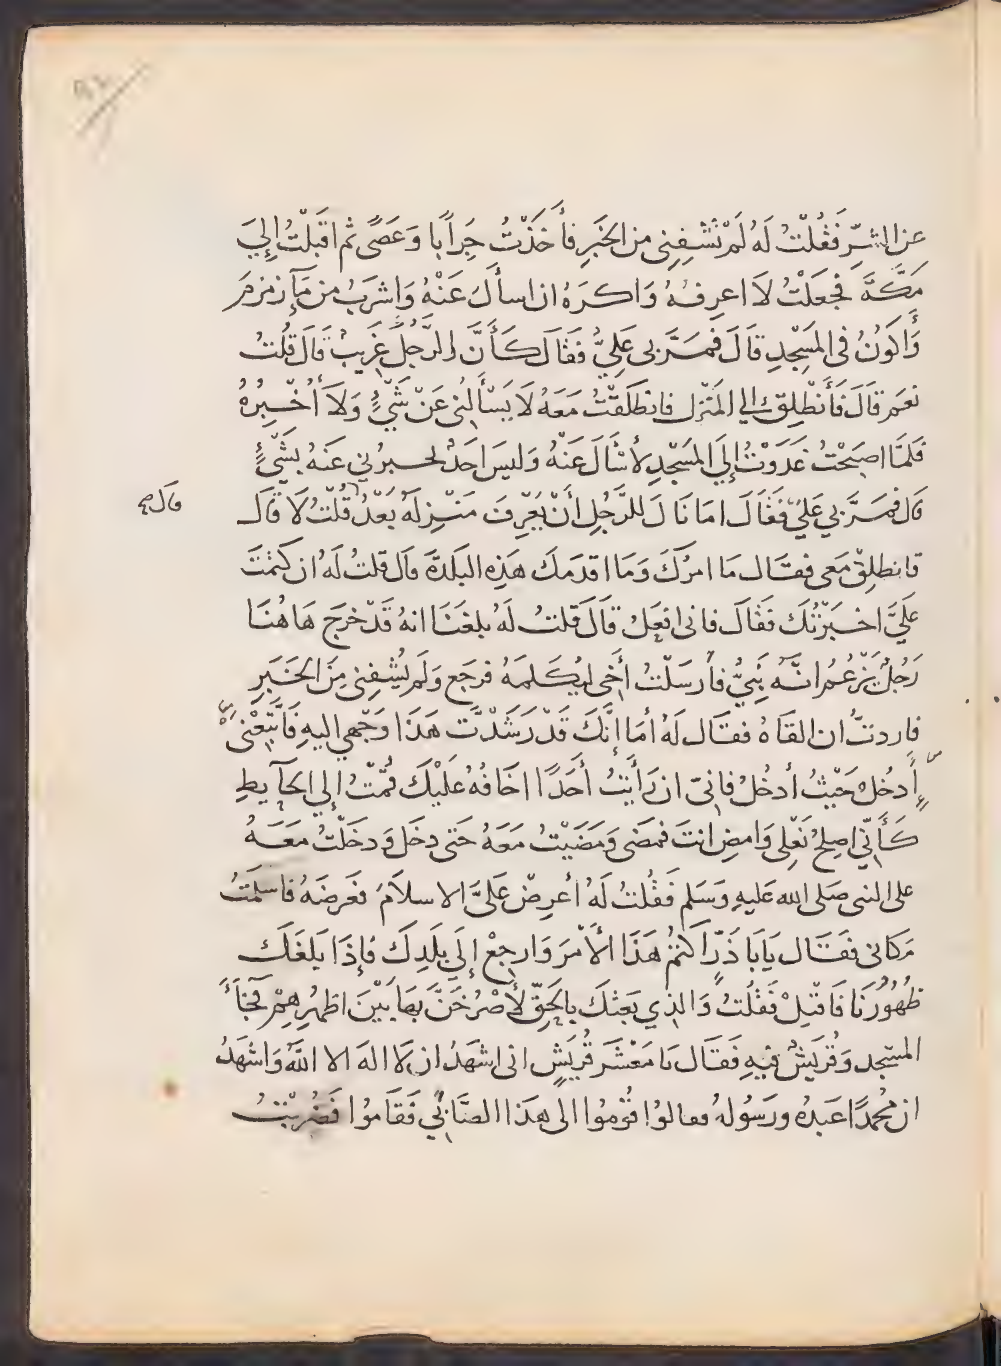 عن الشرِّ فَقُلْتُ لَهُ لَمْ تَشْفِنِي من الخَبَرِ فأخَذْتُ جِرَابًا وَعَصًى ثم اقبَلْتُ إِلىَ
مَكَّةَ فجعَلْتُ لَا اعرِفُهُ وَاكرَهُ ان اسأَلَ عَنْهُ وَاشرَبُ من مَآءِ زمزمَ
وَأَكُونُ في المَسْجِدِ قَالَ فمَرَّ بي عَلِيٌّ فقَالَ كَأَنَّ الرَّجُلَ غَرِيبٌ قَالَ قُلتُ
نعَم قَالَ فَأَنْطلِقْ إلي المَنْزِل فانطَلَقْتُ مَعَهُ لَا يَسْأَلُنِي عَنْ شَيْءٍ وَلَا أُخْبِرُهُ
فَلَمَّا اصبَحْتُ غَدَوْتُ إِلَى المَسْجِدِ لأَسْأَلَ عَنْهُ وَليسَ احَدٌ يخبرُني عَنْهُ بشَيْءٍ
قال فمَرَّ بي عَليٌّ فَقَالَ امَا نَالَ للرَّجُلِ أَنْ يَعْرِفَ مَنْزِلَهُ بَعْدُ قُلْتُ لَا قَالَ
قال صح
فانطلِقْ مَعي فقَال مَا امرُكَ وَمَا اقدَمَكَ هَذِهِ البَلدَةَ قال قلتُ لَهُ ان كتَمْتَ
عَلَيَّ اخبَرْتُكَ فَقَالَ فاني افعَلُ قَالَ قلتُ لَهُ بلغَنَا انهُ قَدْ خرَجَ هَاهُنَا
رَجُلٌ يَزْعُمُ انَّهُ نَبِيٌّ فأرسَلْتُ أَخِي ليُكَلمَهُ فرَجع وَلَم يُشْفِني مِنَ الخَبَرِ
فاردتُّ ان القَاهُ فقَال لَهُ أمَا إِنَّكَ قَدْ رَشَدْتَّ هَذَا وَجْهي اليهِ فَاتَّبِعْنِي
أُدخُلْ حَيْثُ أدخُلُ فانّي ان رَأيتُ أحَدًا اخَافُهُ عَلَيْكَ قُمْتُ إلي الحَآيطِ
كَأَنّي اصلِحُ نَعْلِي وَامضِ انتَ فمَضَى وَمَضَيْتُ مَعَهُ حَتى دخَلَ وَدخَلْتُ مَعَهُ
على النبي صَلى الله عَليهِ وَسَلم فَقُلتُ لَهُ أعرِضْ عَلَيَّ الاسلَامَ فعَرضَهُ فاسلَمْتُ
مَكاني فقَال يَابَا ذَرٍّ اكتمْ هَذَا الأَمْرَ وَارجِعْ إِلَي بَلَدِكَ فإذَا بَلغَكَ
ظُهُوُرنَا فَاقْبِلْ فَقُلتُ وَالذِي بَعَثكَ بِالحَقِّ لأَصْرُخَنَّ بهَا بَيْنَ اظهُرِهِمْ فجَاءَ
المَسْجِد وَقُريشٌ فيهِ فَقَال يَا مَعْشَرَ قُرَيشٍ اني اشهَدُ ان لَا الهَ الا اللَّهُ وَاشهَدُ
ان محمدًا عَبدُهُ ورَسُولهُ فقالوُا قُومُوا الى هَذَا الصَّابِئي فَقَامُوا فَضُرِبْتُ